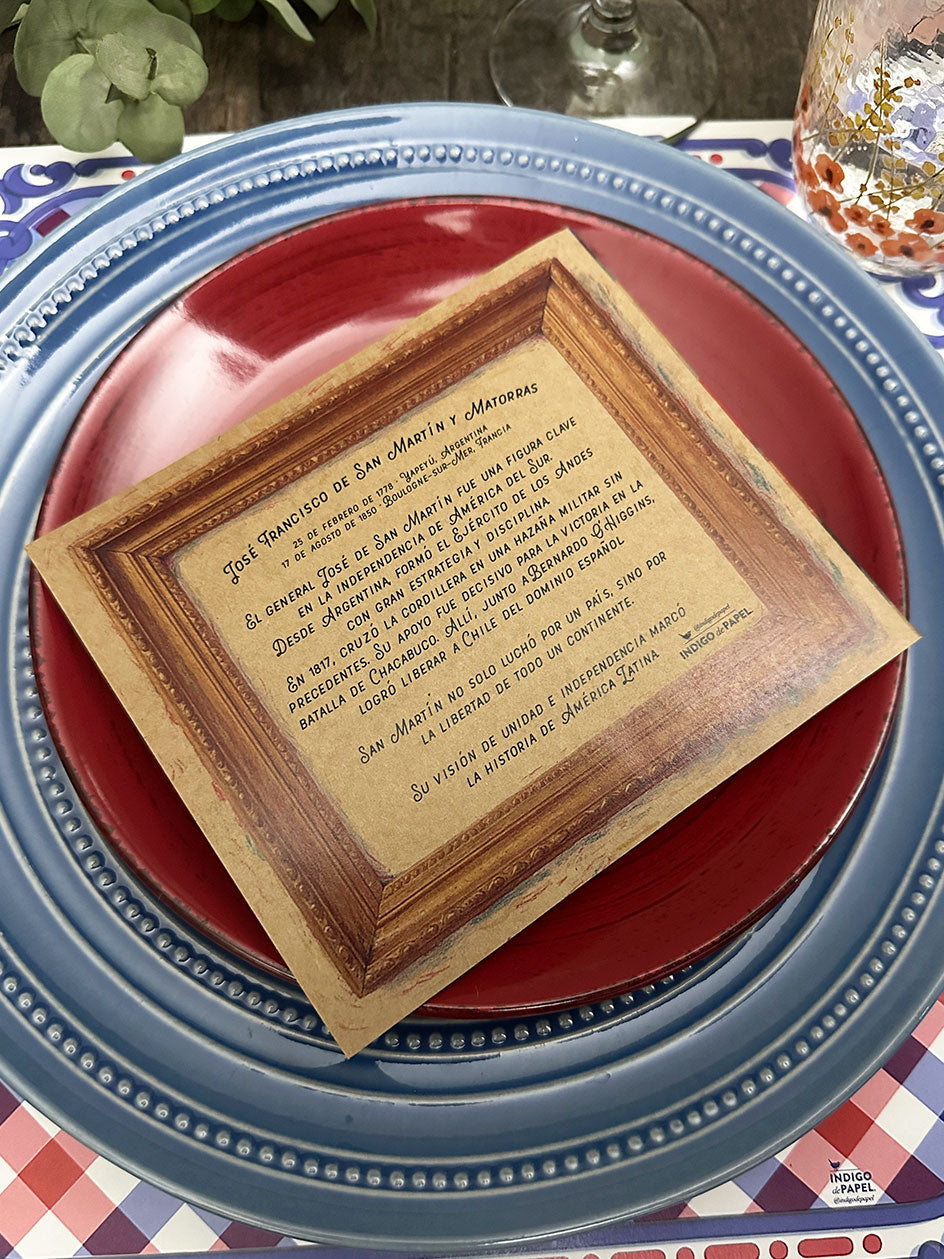 José Francisco de San Martín y Matorras
25 de febrero de 1778 · Yapeyú, Argentina
17 de agosto de 1850 · Boulogne-sur-Mer, Francia
El general José de San Martín fue una figura clave
en la independencia de América del Sur.
Desde Argentina, formó el Ejército de los Andes
con gran estrategia y disciplina
En 1817, cruzó la cordillera en una hazaña militar sin
precedentes. Su apoyo fue decisivo para la victoria en la
batalla de Chacabuco. Allí, junto a Bernardo O'Higgins,
logró liberar a Chile del dominio español
San Martín no solo luchó por un país, sino por
la libertad de todo un continente.
Su visión de unidad e independencia marcó
la historia de América Latina
@indigodepapel
INDIGO de PAPEL
INDIGO
de PAPEL
@indigodepapel